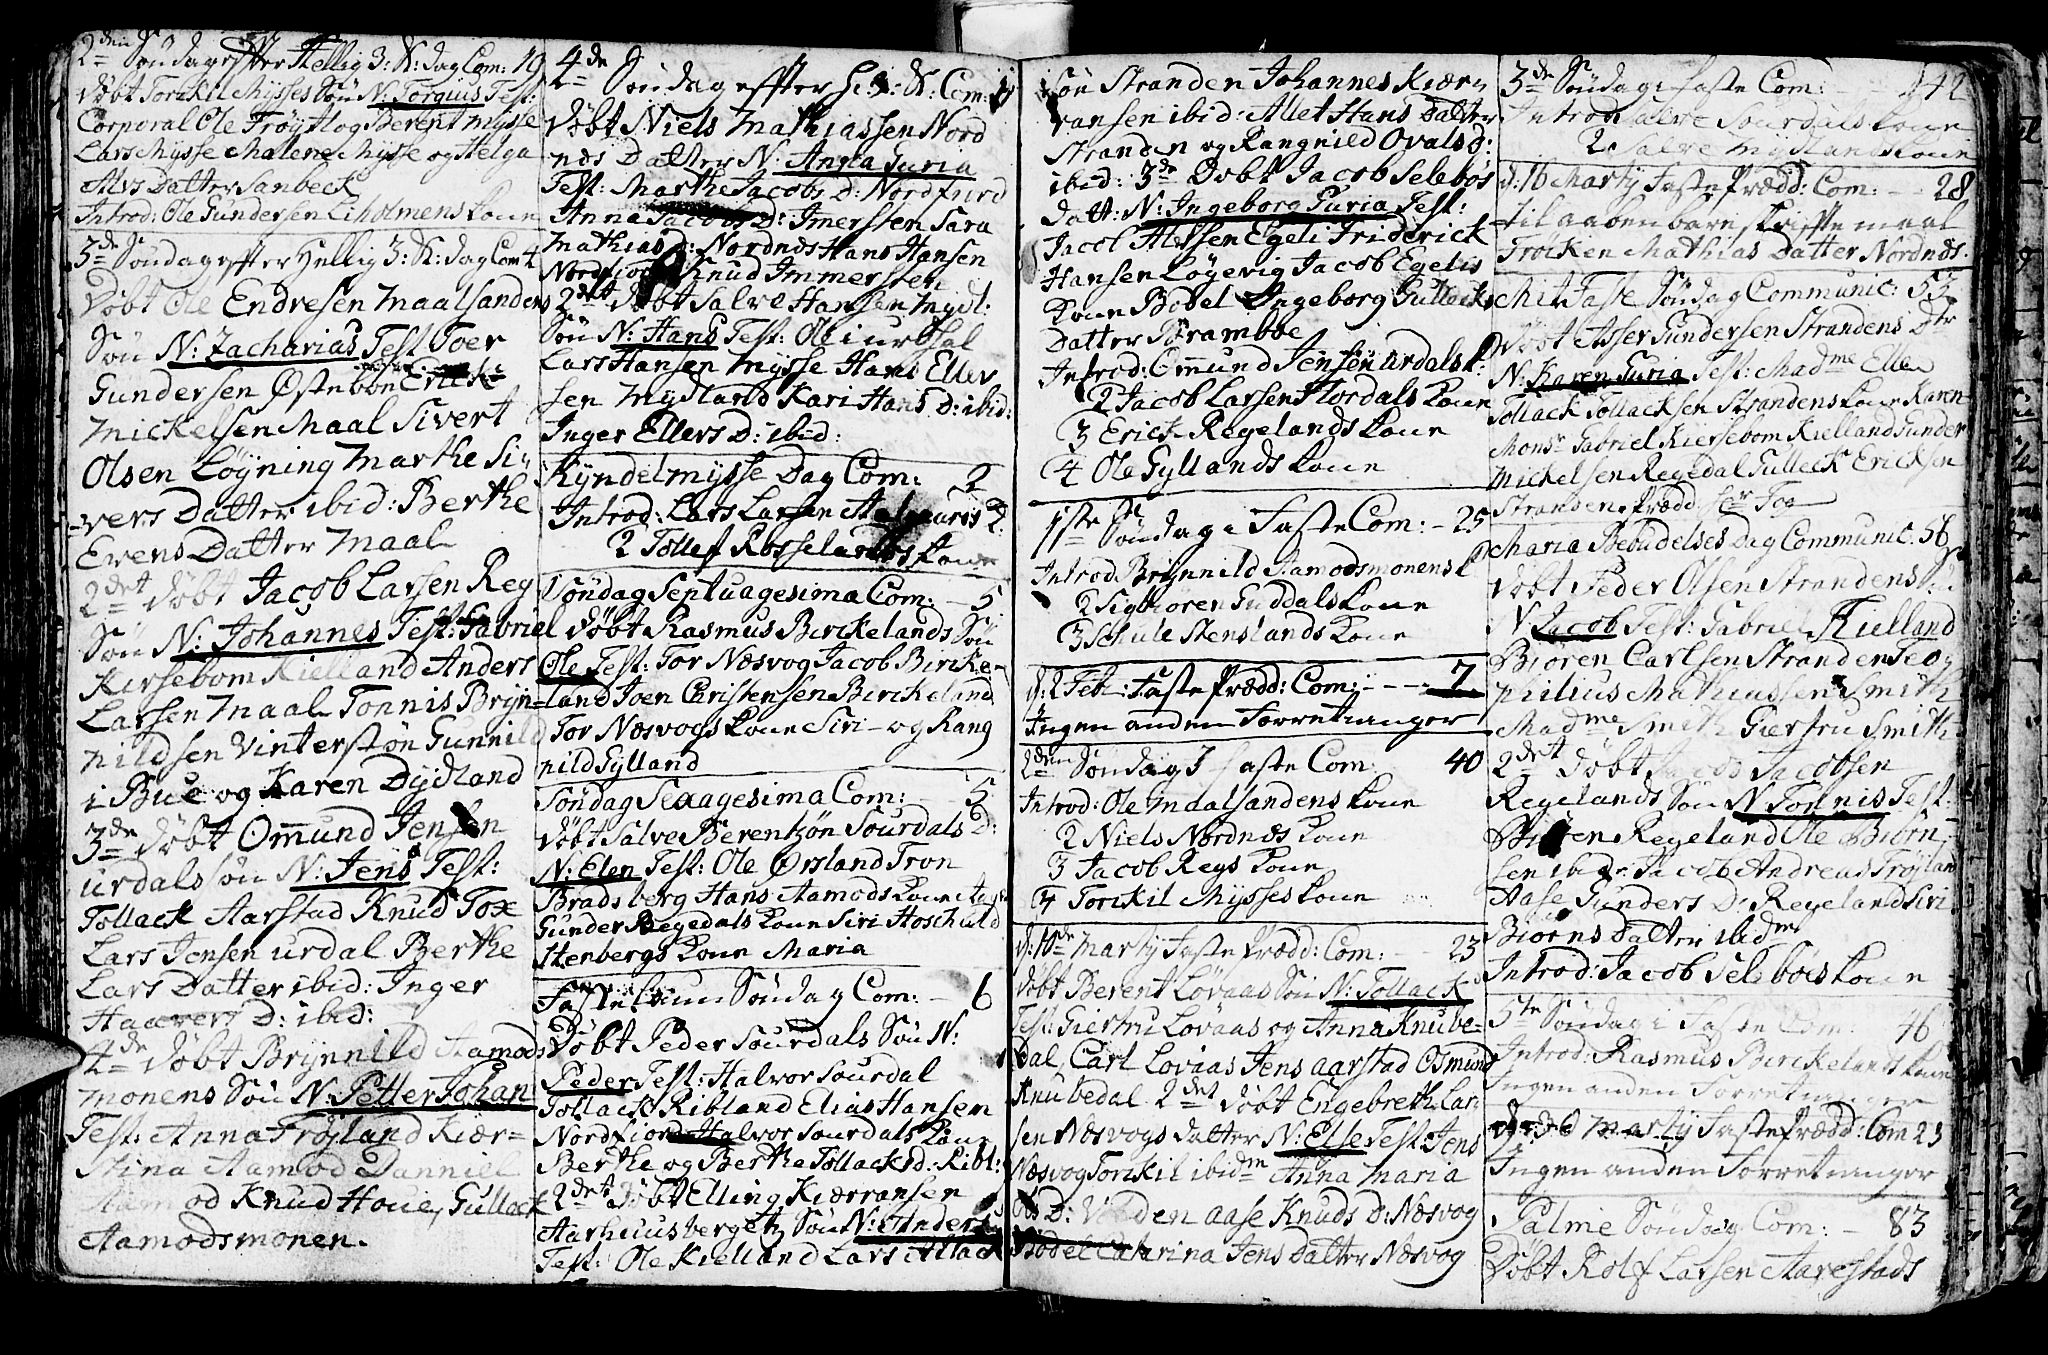 2den Søndag effter Hellig 3: K: dag Com: 19
Døbt Torckil Mysses Søn N: Torgius Test:
Corporal Ole Trøytlog Berent Mysse
Lars Mysse Malene Mysse og Helga
Alvs Datter Sanbeck
Introd: Ole Gundersen Liholmens Kone
3de Søndag effter Hellig 3: K: dag Com 4
Døbt Ole Endresen Maalsandens
Søn N: Zacharias Test Toer
Gundersen Østebøn
Mickelsen Maal Sivert
Olsen Løyning Marthe Si-
vers Datter ibid: Berthe
Evens Datter Maal
2det døbt Jacob Larsen Reg
Søn N: Johannes Test: Gabriel
Kirsebom Kielland Anders
Larsen Maal Tonnis Bryn-
nildsen Vinterstøn Gunnild
i Bue og Karen Dydland
3de døbt Omund Jensen
urdals søn N: Jens Test:
Tollack Aarstad Knud Tox
Lars Jensen urdal Berthe
Lars Datter ibid: Inger
Haavers D: ibid:
4de døbt Brynnild Aamods
monens Søn N: Petter Johan
Test: Anna Frøyland Kier=
Stina Aamod Danniel
Aamod Knud Houe, Gulleck
Aamodsmonen.
4de Søndag effter H: 3: K: Com:
Døbt Niels Mathiassen Nord
nes Datter N: Anna Guria
Test: Marthe Jacobs D: Nordfiord
Anna Jacobs D: Imerssen Sara
Mathias D: Nordnes Hans Hansen
Nordfiord Knud Immersen
2det døbt Salve Hansen Mydl:
Søn N: Hans Test: Ole iurdsal
Lars Hansen Mysse Hans Ellev
sen Mydland Kari Hans D: ibid:
Inger Ellevs D: ibid:
Kyndelmysse Dag Com: 2
Introd: Lars Larsen
2 Tollef Rosselands Kone
Søndag Septuagesima Com: - 5
døbt Rasmus Birckelands Søn
Ole Test: Tor Næsvog Jacob Bircke-
land Joen Christensen Birckeland
Tor Næsvogs Kone Siri og Rang
nild Gylland
Søndag Sexagesima Com: 5
døbt Salve Berentzøn Sourdals D:
N: Elen Test: Ole Ørsland Tron
Bradsberg Hans Aamods Kone
Gunder Regedals Kone Siri Hoschuld
Stenbergs Kone Maria
Fastelaun Søndag Com: - 6
Døbt Peder Sourdals Søn N:
Peder Test: Halvor Sourdal
Tollack Ribland Elias Hansen
Nordfiord Halvor Sourdals Kone
Berthe og Berthe Tollacks d: Ribl:
2det Døbt Elling Kierransen
Aarhuusberget Søn N: Anders
Test: Ole Kielland Lars Allack
søn Stranden Johannes Kiær-
ransen ibid: Allet Hans Datter
Stranden og Rangnild Ovals D:
ibid: 3de Døbt Jacob Selebøs
Datt: N: Ingeborg Guria Test:
Jacob Alssen Egeli Friderick
Hansen Løgevig Jacob Egelis
Kone Bodel Ingeborg Gullecks
Datter Strambøe
Introd: Omund Jensen urdals K:
2 Jacob Larsen Flordals Kone
3 Erick Regelands Kone
4 Ole Gyllands Kone
1ste Søndag i Faste Com: - 25
Introd Brynnild Aamodsmonens K
2 Sigbiøren Guddals Kone
3 Schule Stenslands Kone
d: 2 Feb: FastePrædd: Com: - - - 7
Ingen anden Forretninger
2den Søndag I faste Com: 40
Introd: Ole Maalsandens Kone
2 Niels Nordnes Kone
3 Jacob Regs Kone
4 Torckil Mysses Kone
d: Marty FastePrædd: Com: - 23
døbt Berent Løvaas Søn N: Tollack
Test: Giertru Lovaas og Anna Knube-
dal, Carl Lovaas Jens Aarstad Osmund
Knubedal 2det døbt Engebreth Lar-
sen Næsvogs datter N: Else Test: Jens
Næsvog Torckil ibidm Anna Maria
D: Aase Knuds D: Næsvog
Bodel Catrina Jens Datter Næsvog
142
3de Søndag i faste Com:
Introd Salve Sourdals Kone
2 Salve Mydlands Kone
d: 16 Marty FastePrædd: Com: - 28
til aabenbare skriftemaal
Trocken Mathias Datter Nordnes.
Mit Faste Søndag Communic: 53
Døbt Asser Gundersen Strandens Dtr
N: Karen Guria Test: Madme Ellen
Tollack Tollacksen Strandens Kone Karen
Monsr Gabriel Kiersebom Kielland Gunder
Mickelsen Regedal Gulleck Ericksen
Stranden. Prædd:
Maria Bebudelses Dag Communic: 58
Døbt Peder Olsen Strandens
N Jacob Test: Gabriel Kielland
Biøren Carlsen Stranden Teo-
philius Mathiassen Smith
Madme Smith Giertru Smith
2det Døbt Jacob Jacobsen
Regelands Søn N Tonnis Test:
Biøren Regeland Ole Biørn-
sen ibid: Jacob Andreas Frøylan
Aase Gunders D: Regeland Siri
Biørns Datter ibidm
Introd: Jacob Selebøes Kone
5te Søndag i Faste Com: 46
Introd: Rasmus Birckelands Kone
Ingen anden Forretninger
d: 30 Marty FastePrædd: Com 23
Ingen anden Forretninger
Palme Søndag Com: - 83
Døbt Rolf Larsen Aarestads